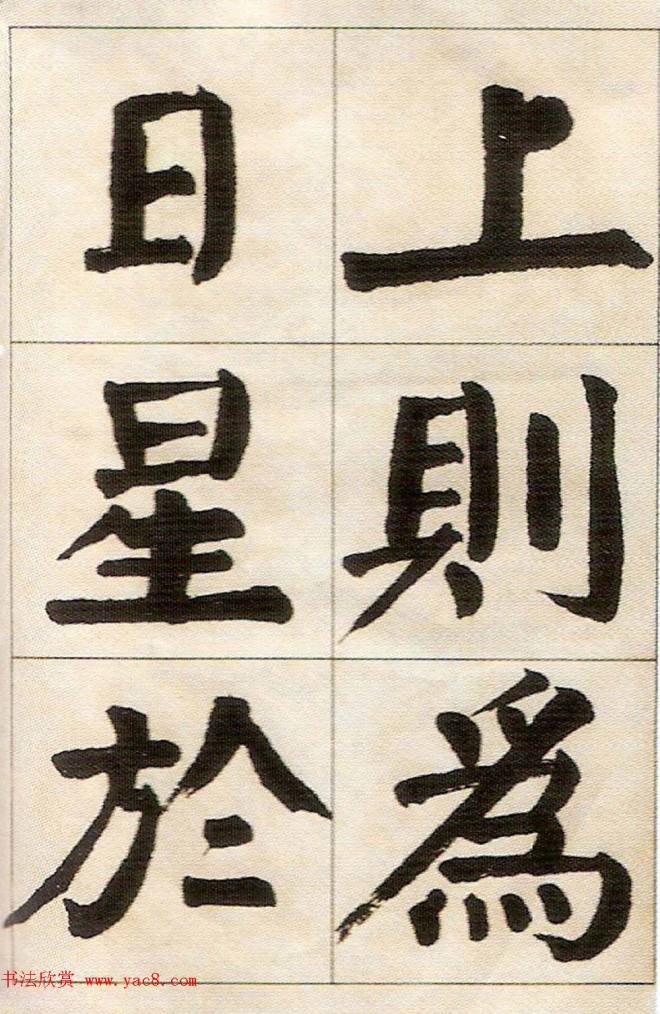 上則爲
日星於
书法欣赏 www.yac8.com